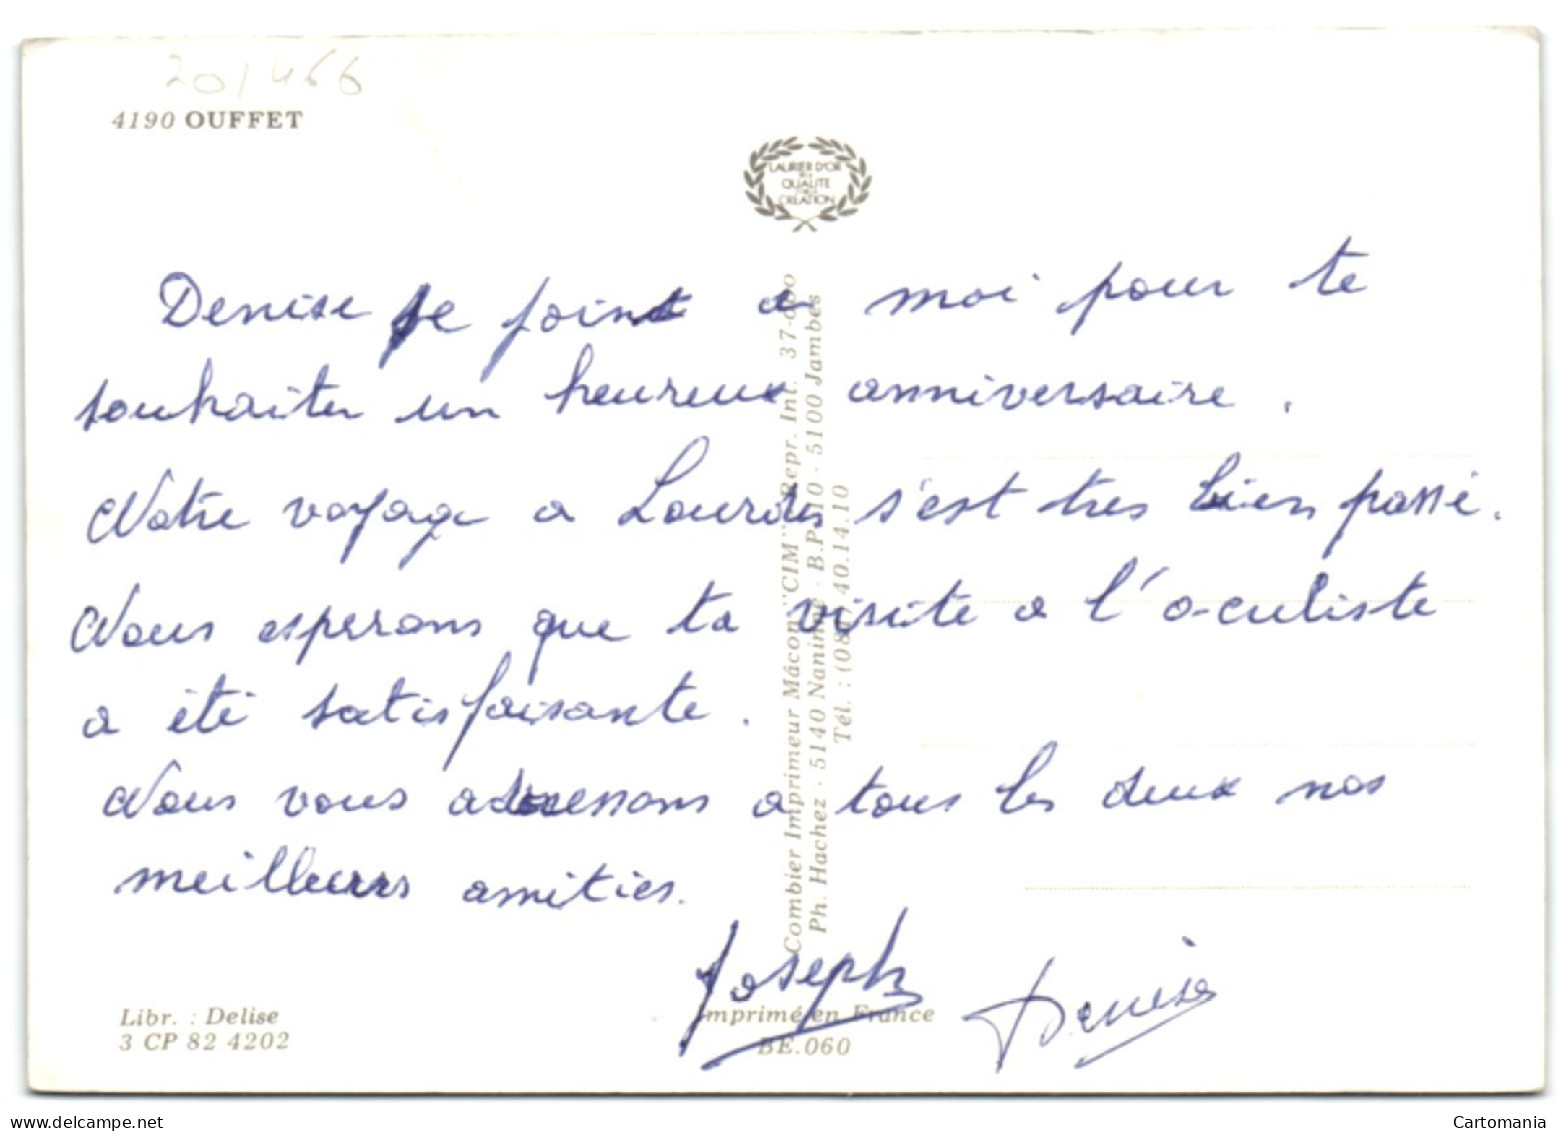 201466
4190 OUFFET
LAURIER D'OR
DE LA
QUALITE
CREATION
Denise se joint a moi pour te
souhaiter un heureux anniversaire.
Notre voyage a Lourdes s'est tres bien passé.
Nous esperons que ta visite a l'oculiste
a été satisfaisante.
Nous vous adressons a tous les deux nos
meilleurs amities.
Joseph Denise
Combier Imprimeur Mâcon "CIM" Repr. Int. 37-000
Ph. Hachez - 5140 Naninne - B.P. 10 - 5100 Jambes
Tél. : (081) 40.14.10
Libr. : Delise
3 CP 82 4202
Imprimé en France
BE.060
delcampe.net
Cartomania